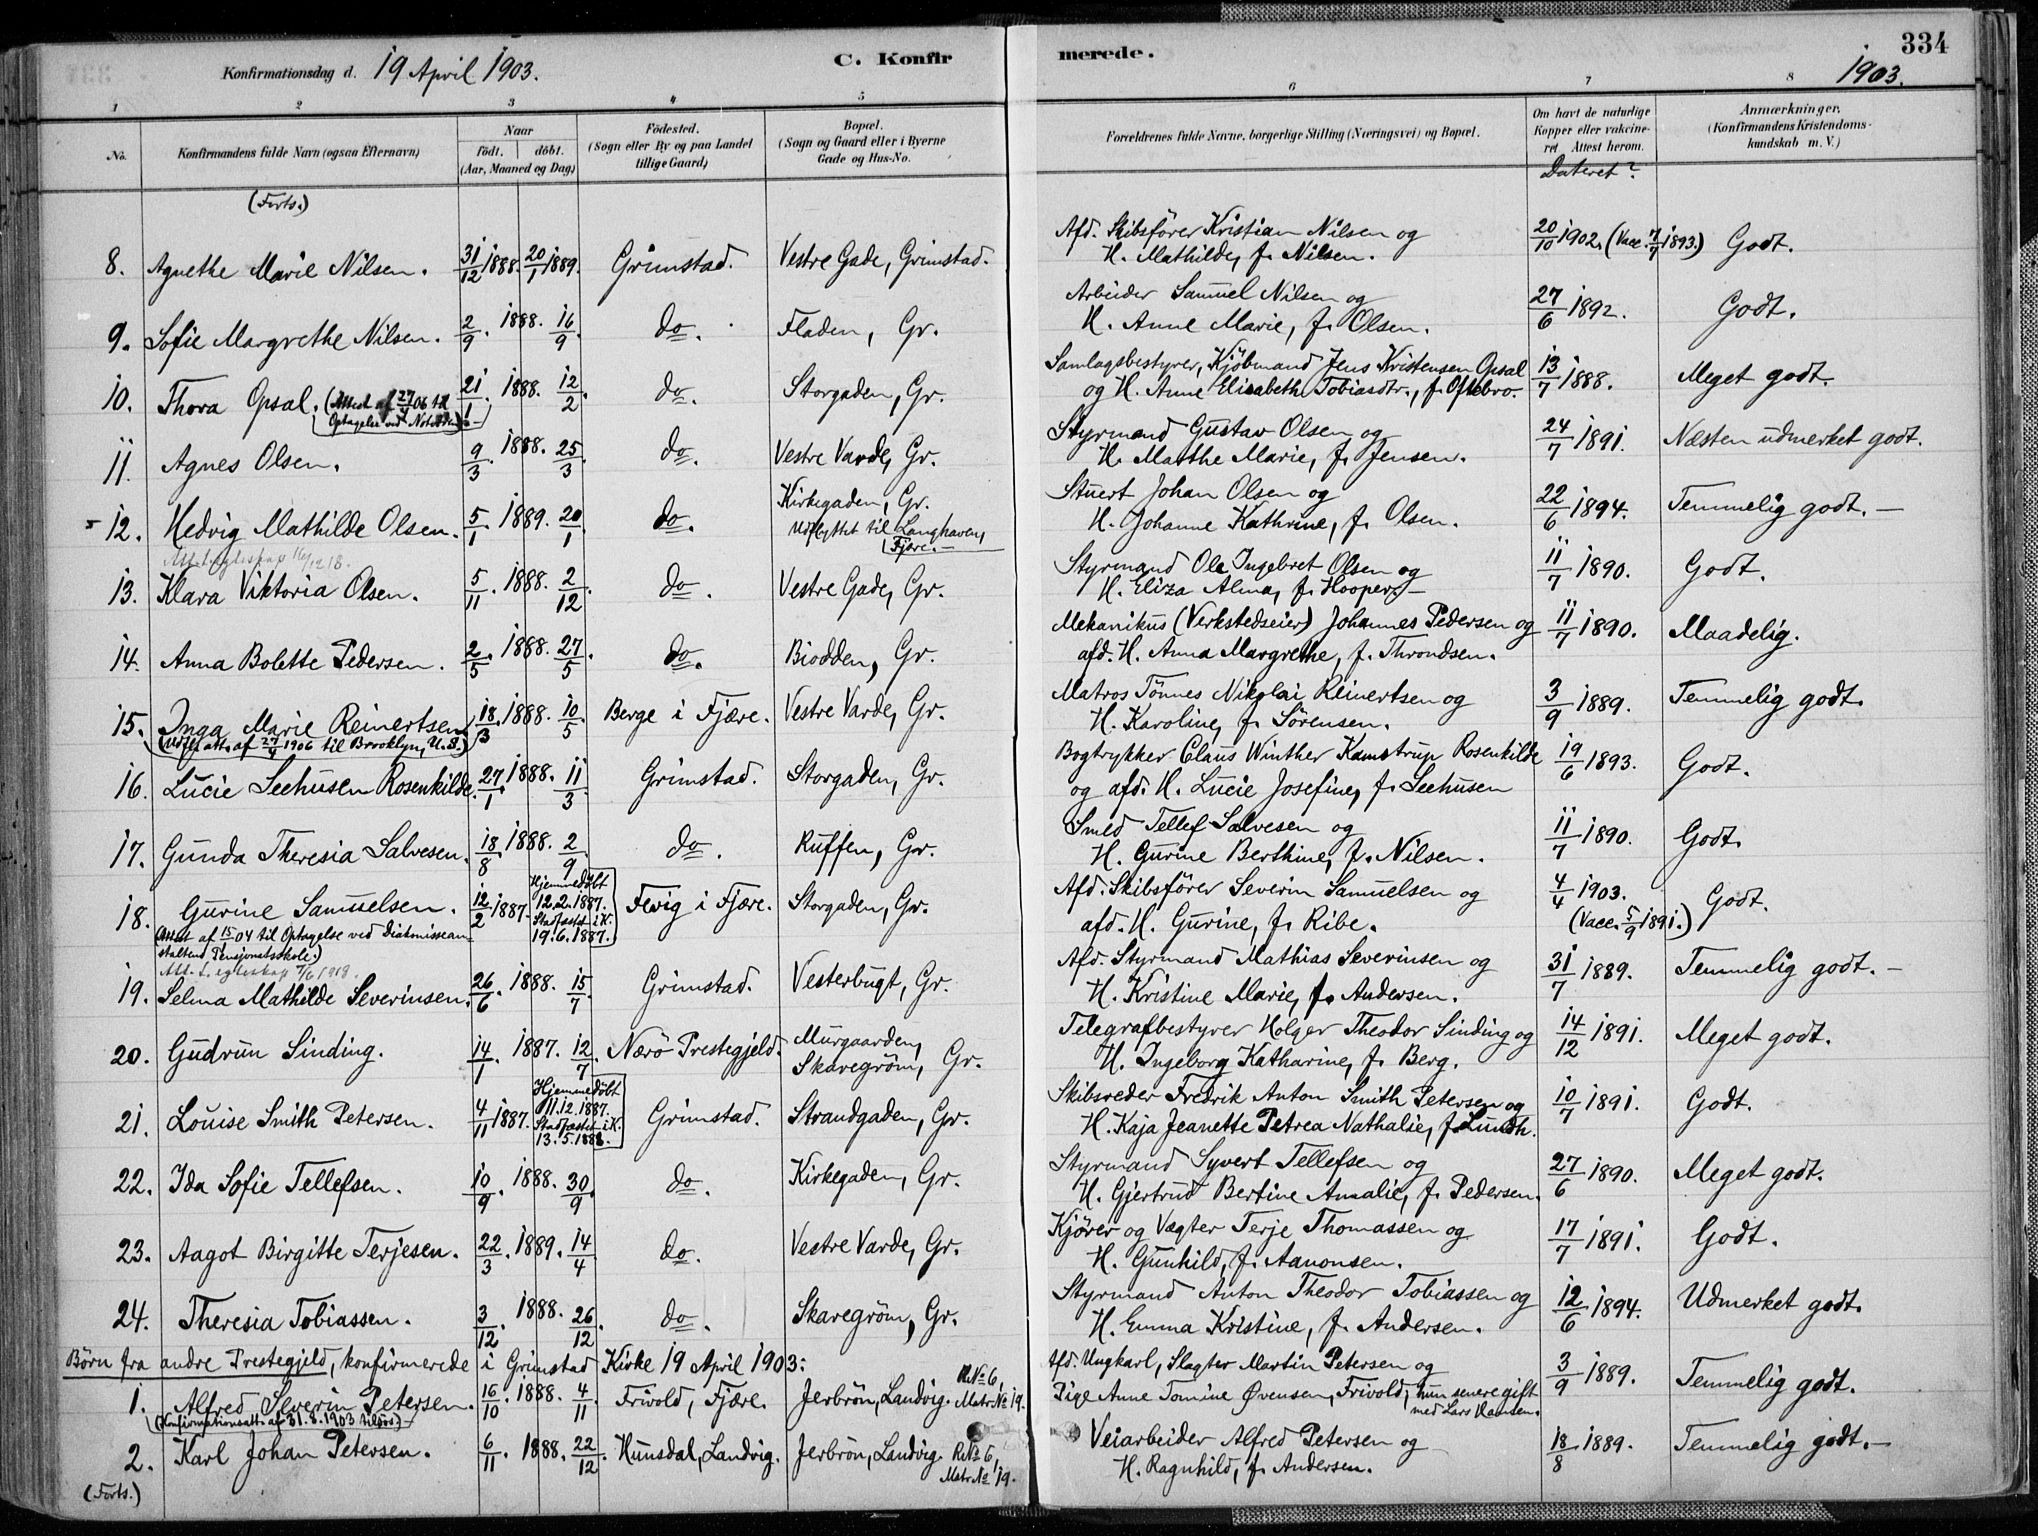 334
Konfirmationsdag d. 19 April 1903. C. Konfirmerede. 1903.
1 2 3 4 5 6 7 8
No. Konfirmandens fulde Navn (ogsaa Efternavn) Naar født. døbt. (Aar, Maaned og Dag) Fødested. (Sogn eller By og paa Landet tillige Gaard) Bopæl. (Sogn og Gaard eller i Byerne Gade og Hus-No. Forældrenes fulde Navne, borgerlige Stilling (Næringsvei) og Bopæl. Om havt de naturlige Kopper eller vakcineret Attest herom. Anmærkninger. (Konfirmandens Kristendomskundskab m. V.)
Dateret?
(Forts.)
8. Agnethe Marie Nilsen. 31/12 1888. 20/7 1889. Grimstad. Vestre Gade, Grimstad. Afd. Skibsfører Kristian Nilsen og H. Mathilde, f. Nilsen. 20/10 1902. (Vacc. 7/7 1893.) Godt.
9. Sofie Margrethe Nilsen. 2/9. 1888. 16/9. do. Fladen, Gr. Arbeider Samuel Nilsen og H. Anne Marie, f. Olsen. 27/6 1892. Godt.
10. Thora Opsal. (Attest af 27/4 06 til Optagelse ved Notodden) 21/1. 1888. 12/2. do. Storgaden, Gr. Samlagsbestyrer, Kjøbmand Jens Kristensen Opsal og H. Anne Elisabeth Tobiasdtr., f. Oftebro. 13/7 1888. Meget godt.
11. Agnes Olsen. 9/3. 1888. 25/3. do. Vestre Varde, Gr. Styrmand Gustav Olsen og H. Marthe Marie, f. Jensen. 24/7 1891. Næsten udmerket godt.
12. Hedvig Mathilde Olsen. 5/1. 1889. 20/1. do. Kirkegaden, Gr. Udflyttet til Langhaven, Fjære. Stuert Johan Olsen og H. Johanne Kathrine, f. Olsen. 22/6 1894. Temmelig godt.
13. Klara Viktoria Olsen. 5/11. 1888. 2/12. do. Vestre Gade, Gr. Styrmand Ole Ingebret Olsen og H. Eliza Alma, f. Hooper. 11/7 1890. Godt.
14. Anna Bolette Pedersen. 2/5. 1888. 27/5. do. Biodden, Gr. Mekanikus (Verkstedseier) Johannes Pedersen og afd. H. Anna Margrethe, f. Throndsen. 11/7 1890. Maadelig.
15. Inga Marie Reinertsen (Udfl. att. af 27/4 1906 til Brooklyn, U.S.) 18/3. 1888. 10/5. Berge i Fjære. Vestre Varde, Gr. Matros Tønnes Nikolai Reinertsen og H. Karoline, f. Sørensen. 3/9 1889. Temmelig godt.
16. Lucie Seehusen Rosenkilde. 27/1. 1888. 11/3. Grimstad. Storgaden, Gr. Bogtrykker Claus Winther Kamstrup Rosenkilde og afd. H. Lucie Josefine, f. Seehusen 19/6 1893. Godt.
17. Gunda Theresia Salvesen. 18/8. 1888. 2/9. do. Ruffen, Gr. Smed Tellef Salvesen og H. Gurine Berthine, f. Nilsen. 11/7 1890. Godt.
18. Gurine Samuelsen. (Attest af 15/04 til Optagelse ved Diakonissean-staltens Pensjonatsskole.) 12/2 1887. Hjemmedøbt 12.2.1887. Stadfæstet i K. 19.6.1887. Fevig i Fjære. Storgaden, Gr. Afd. Skibsfører Severin Samuelsen og afd. H. Gurine, f. Ribe. 4/4 1903. (Vacc. 5/9 1891.) Godt.
19. Selma Mathilde Severinsen. 26/6. 1888. 15/7. Grimstad. Vesterbugt, Gr. Afd. Styrmand Mathias Severinsen og H. Kristine Marie, f. Andersen. 31/7 1889. Temmelig godt.
20. Gudrun Sinding. 14/1. 1887. 12/7. Nærø Prestegjeld. Murgaarden, Skaregrøm, Gr. Telegrafbestyrer Holger Theodor Sinding og H. Ingeborg Katharine, f. Berg. 14/12 1891. Meget godt.
21. Louise Smith Petersen. 4/11 1887. Hjemmedøbt 11.12.1887. Stadfæstet i K. 13.5.1888. Grimstad. Strandgaden, Gr. Skibsreder Fredrik Anton Smith Petersen og H. Kaja Jeanette Petrea Nathalie, f. Lundh. 10/7 1891. Godt.
22. Ida Sofie Tellefsen. 10/9. 1888. 30/9. do. Kirkegaden, Gr. Styrmand Syvert Tellefsen og H. Gjertrud Bertine Amalie, f. Pedersen. 27/6 1890. Meget godt.
23. Aagot Birgitte Terjesen. 22/3. 1889. 14/4. do. Vestre Varde, Gr. Kjører og Vægter Terje Thomassen og H. Gunhild, f. Aanonsen. 17/7 1891. Godt.
24. Theresia Tobiassen. 3/12. 1888. 26/12. do. Skaregrøm, Gr. Styrmand Anton Theodor Tobiassen og H. Emma Kristine, f. Andersen. 12/6 1894. Udmerket godt.
Børn fra andre Prestegjeld, konfirmerede i Grimstad Kirke 19 April 1903:
1. Alfred Severin Petersen. (Konfirmationsatt. af 31.8.1903 tilfös) 16/10. 1888. 4/11. Frivold, Fjære. Jerbrøn, Landvig. R.No 6, Matr.No 19. Afd. Ungkarl, Slagter Martin Petersen og Pige Anne Tomine Øvensen, Frivold, hun senere gift med Lars Hansen. 3/9 1889. Temmelig godt.
2. Karl Johan Petersen. 6/11. 1888. 22/12. Hunsdal, Landvig. Jerbrøn, Landvig. R.No 6, Matr.No 19. Veiarbeider Alfred Petersen og H. Ragnhild, f. Andersen. 18/8 1889. Temmelig godt.
(Forts.)